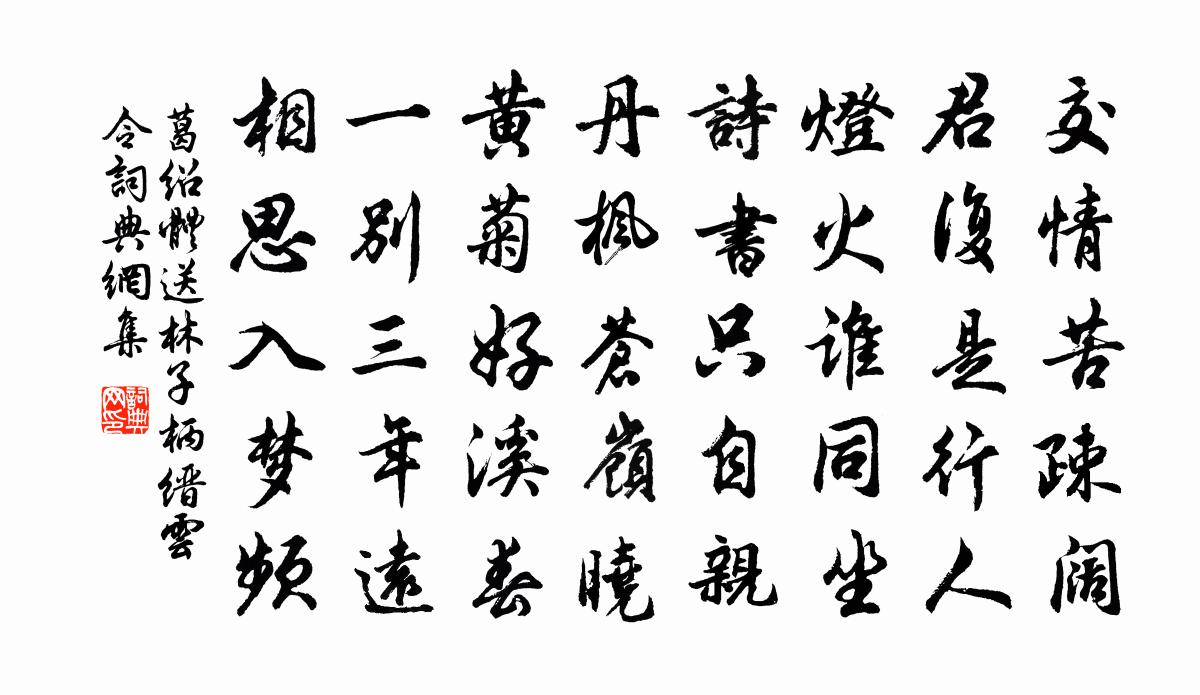 交情苦疎阔
君復是行人
燈火誰同坐
詩書只自親
丹楓蒼嶺曉
黄菊好溪春
一别三年遠
相思入梦频
葛绍體送林子柄缙雲
令詞典網集
詞典网印